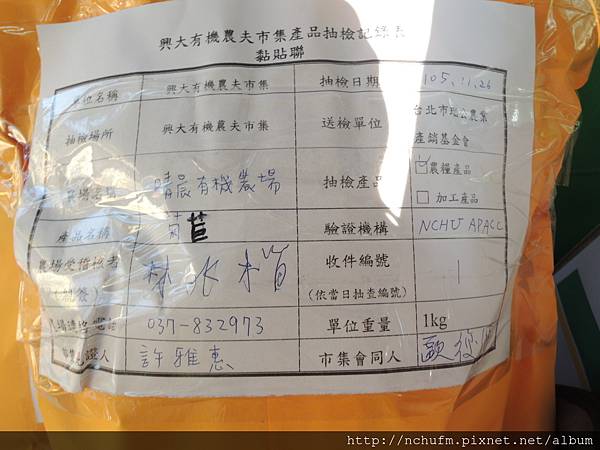 興大有機農夫市集產品抽檢記錄表
黏貼聯
單位名稱 興大有機農夫市集 抽檢日期 105.11.26
抽檢場所 興大有機農夫市集 送檢單位 台北市瑠公農業
產銷基金會
農場名稱 晴晨有機農場 抽檢產品 ☑農糧產品
□ 加工產品
產品名稱 萵苣 驗證機構 NCHU APACC
農場受稽核者 林水 收件編號 1
(親簽) (依當日抽查編號)
農場連絡電話 037-832973 單位重量 1kg
證人 許雅惠 市集會同人 歐
http://nchufm.pixnet.net/album